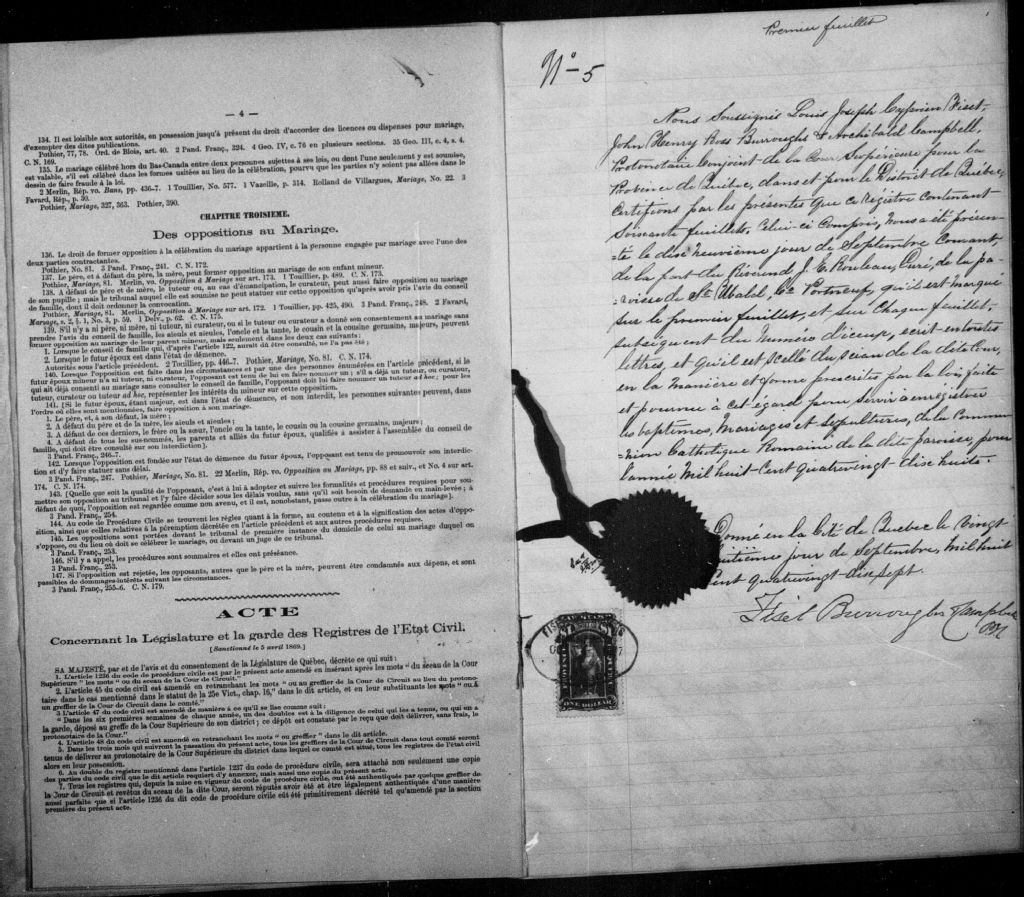 — 4 —
134. Il est loisible aux autorités, en possession jusqu'à présent du droit d'accorder des licences ou dispenses pour mariage,
d'exempter des dites publications.
Pothier, 77, 78. Ord. de Blois, art. 40. 2 Pand. Franç., 324. 4 Geo. IV, c. 76 en plusieurs sections. 35 Geo. III, c. 4, s. 4.
C. N. 169.
135. Le mariage célébré hors du Bas-Canada entre deux personnes sujettes à ses lois, ou dont l'une seulement y est soumise,
est valable, s'il est célébré dans les formes usitées au lieu de la célébration, pourvu que les parties n'y soient pas allées dans le
dessin de faire fraude à la loi.
2 Merlin, Rép. vo. Bans, pp. 436-7. 1 Touillier, No. 577. 1 Vazeille, p. 314. Rolland de Villargues, Mariage, No. 22. 3
Favard, Rép., p. 39.
Pothier, Mariage, 327, 363. Pothier, 390.
CHAPITRE TROISIEME.
Des oppositions au Mariage.
136. Le droit de former opposition à la célébration du mariage appartient à la personne engagée par mariage avec l'une des
deux parties contractantes.
Pothier, No. 81. 3 Pand. Franç., 241. C. N. 172.
137. Le père, et à défaut du père, la mère, peut former opposition au mariage de son enfant mineur.
Pothier, Mariage, 81. Merlin, vo. Opposition à Mariage sur art. 173. 1 Touillier, p. 489. C. N. 173.
138. A défaut de père et de mère, le tuteur ou, au cas d'émancipation, le curateur, peut aussi faire opposition au mariage
de son pupille; mais le tribunal auquel elle est soumise ne peut statuer sur cette opposition qu'après avoir pris l'avis du conseil
de famille, dont il doit ordonner la convocation.
Pothier, Mariage, 81. Merlin, Opposition à Mariage sur art. 172. 1 Touillier, pp. 425, 490. 3 Pand. Franç., 248. 2 Favard,
Mariage, s. 2, § 1, No. 3, p. 59. 1 Delv., p. 62. C. N. 175.
139. S'il n'y a ni père, ni mère, ni tuteur, ni curateur, ou si le tuteur ou curateur a donné son consentement au mariage sans
prendre l'avis du conseil de famille, les aïeuls et aïeules, l'oncle et la tante, le cousin et la cousine germains, majeurs, peuvent
former opposition au mariage de leur parent mineur, mais seulement dans les deux cas suivants:
1. Lorsque le conseil de famille qui, d'après l'article 122, aurait dû être consulté, ne l'a pas été;
2. Lorsque le futur époux est dans l'état de démence.
Autorités sous l'article précédent. 2 Touillier, pp. 446-7. Pothier, Mariage, No. 81. C. N. 174.
140. Lorsque l'opposition est faite dans les circonstances et par une des personnes énumérées en l'article précédent, si le
futur époux mineur n'a ni tuteur, ni curateur, l'opposant est tenu de lui en faire nommer un; s'il a déjà un tuteur, ou curateur,
qui ait déjà consenti au mariage sans consulter le conseil de famille, l'opposant doit lui faire nommer un tuteur ad hoc; pour les
tuteur, curateur ou tuteur ad hoc, représenter les intérêts du mineur sur cette opposition.
141. [Si le futur époux, étant majeur, est dans l'état de démence, et non interdit, les personnes suivantes peuvent, dans
l'ordre où elles sont mentionnées, faire opposition à son mariage.
1. Le père, et à son défaut, la mère;
2. A défaut du père et de la mère, les aïeuls et aïeules;
3. A défaut de ces derniers, le frère ou la sœur, l'oncle ou la tante, le cousin ou la cousine germains, majeurs;
4. A défaut de tous les sus-nommés, les parents et alliés du futur époux, qualifiés à assister à l'assemblée du conseil de
famille, qui doit être consulté sur son interdiction].
3 Pand. Franç., 246-7.
142. Lorsque l'opposition est fondée sur l'état de démence du futur époux, l'opposant est tenu de promouvoir son interdic-
tion et d'y faire statuer sans délai.
3 Pand. Franç., 247. Pothier, Mariage, No. 81. 22 Merlin, Rép. vo. Opposition au Mariage, pp. 88 et suiv., et No. 4 sur art.
174. C. N. 174.
143. [Quelle que soit la qualité de l'opposant, c'est à lui à adopter et suivre les formalités et procédures requises pour sou-
mettre son opposition au tribunal et l'y faire décider sous les délais voulus, sans qu'il soit besoin de demande en main-levée; à
défaut de quoi, l'opposition est regardée comme non avenu, et il est, nonobstant, passé outre à la célébration du mariage].
3 Pand. Franç., 254.
144. Au code de Procédure Civile se trouvent les règles quant à la forme, au contenu et à la signification des actes d'oppo-
sition, ainsi que celles relatives à la péremption décrétée en l'article précédent et aux autres procédures requises.
145. Les oppositions sont portées devant le tribunal de première instance du domicile de celui au mariage duquel on
s'oppose, ou du lieu où doit se célébrer le mariage, ou devant un juge de ce tribunal.
3 Pand. Franç., 253.
146. S'il y a appel, les procédures sont sommaires et elles ont préséance.
3 Pand. Franç., 253.
147. Si l'opposition est rejetée, les opposants, autres que le père et la mère, peuvent être condamnés aux dépens, et sont
passibles de dommages-intérêts suivant les circonstances.
3 Pand. Franç., 255-6. C. N. 179.
ACTE
Concernant la Législature et la garde des Registres de l'Etat Civil.
[Sanctionné le 5 avril 1869.]
SA MAJESTÉ, par et de l'avis et du consentement de la Législature de Québec, décrète ce qui suit:
1. L'article 1236 du code de procédure civile est par le présent acte amendé en insérant après les mots "du sceau de la Cour
Supérieure" les mots "ou du sceau de la Cour de Circuit."
2. L'article 45 du code civil est amendé en retranchant les mots "ou au greffier de la Cour de Circuit au lieu du protono-
taire dans le cas mentionné dans le statut de la 25e Vict., chap. 16," dans le dit article, et en leur substituants les mots "ou à
un greffier de la Cour de Circuit dans le comté."
3 L'article 47 du code civil est amendé de manière à ce qu'il se lise comme suit:
"Dans les six premières semaines de chaque année, un des doubles est à la diligence de celui qui les a tenus, ou qui en a
la garde, déposé au greffe de la Cour Supérieure de son district; ce dépôt est constaté par le reçu que doit délivrer, sans frais, le
protonotaire de la Cour."
4. L'article 48 du code civil est amendé en retranchant les mots "ou greffier" dans le dit article.
5. Dans les trois mois qui suivront la passation du présent acte, tous les greffiers de la Cour de Circuit dans tout comté seront
tenus de délivrer au protonotaire de la Cour Supérieure du district dans lequel ce comté est situé, tous les registres de l'état civil
alors en leur possession.
6. Au double du registre mentionné dans l'article 1237 du code de procédure civile, sera attaché non seulement une copie
des parties du code civil que le dit article requiert d'y annexer, mais aussi une copie du présent acte.
7. Tous les registres qui, depuis la mise en vigueur du code de procédure civile, ont été authentiqués par quelque greffier de
la Cour de Circuit et revêtus du sceau de la dite Cour, seront réputés avoir été et être légalement authentiqués d'une manière
aussi parfaite que si l'article 1236 du dit code de procédure civile eût été primitivement décrété tel qu'amendé par la section
première du présent acte.
Premier feuillet
No 5
Nous Soussignés Louis Joseph Cyprien Fiset,
John Henry Ross Burroughs & Archibald Campbell,
Protonotaire Conjoint de la Cour Supérieure pour la
Province de Québec, dans et pour le District de Québec,
Certifions par les présentes que ce Régistre contenant
Soixante feuillets, celui-ci compris, nous a été présen-
té le dix neuvième jour de Septembre Courant,
de la part du Révérend J. E. Rouleau, Curé, de la pa-
roisse de St Ubald, Co Portneuf, qu'il est marqué
sur le premier feuillet, et sur chaque feuillet
subséquent du Numéro d'iceux, écrit en toutes
lettres, et qu'il est scellé du sceau de la dite Cour,
en la manière et forme prescrites par la loi faite
et pourvue à cet égard pour servir à enrégistrer
les baptêmes, Mariages et sépultures, de la Commu-
nion Catholique Romaine de la dite paroisse, pour
l'année Mil huit Cent quatrevingt-dix huit.
Donné en la Cité de Québec le vingt
huitième jour de Septembre, Mil huit
Cent quatrevingt-dix sept.
Fiset Burroughs Campbell
ONE DOLLAR